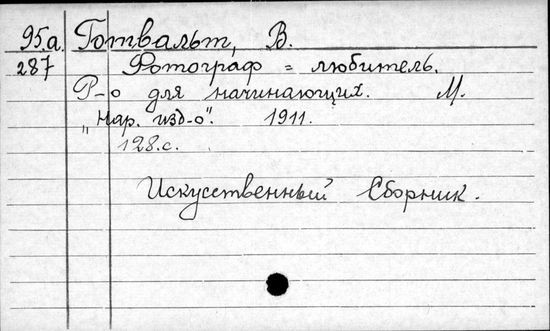 95.а. Готвальт, В.
287 Фотограф = любитель.
Р-о для начинающих. М.
„Нар. изд-о". 1911.
128.с.
Искусственный Сборник.